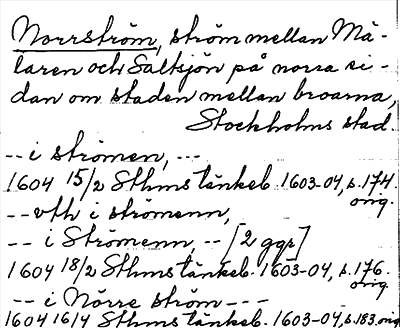 Norrström, ström mellan Mä-
laren och Saltsjön på norra si-
dan om staden mellan broarna,
Stockholms stad.
-- i strömen, --
1604 15/2 Sthms tänkeb. 1603-04, s. 174.
orig.
-- vth i strömenn,
-- i Strömenn, -- [2 ggr]
1604 18/2 Sthms tänkeb. 1603-04, s. 176.
orig.
-- i Nörre ström - - -
1604 16/4 Sthms tänkeb. 1603-04, s. 183. orig